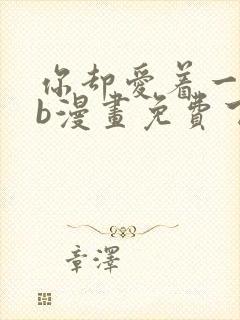 你却爱着一
b漫畫免費
章澤